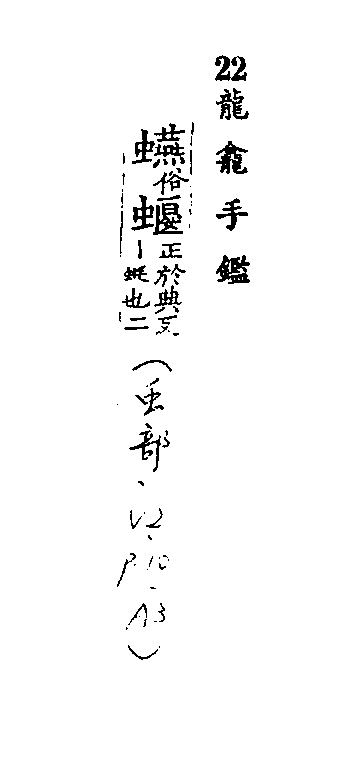 22龍龕手鑑
俗蝘正於典反丨蜓也二（虫部、V2、P.10、A3）